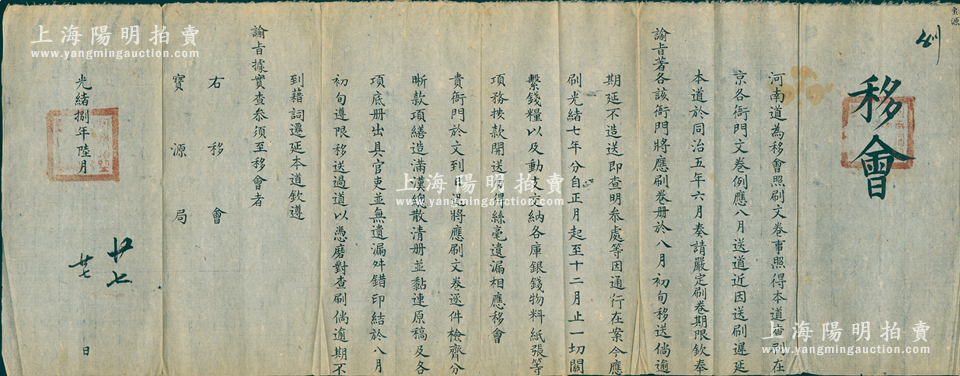 宝源
刷
移會
河南道為移會照刷文卷事照得本道查刷在
京各衙門文卷例應八月送道近因送刷遲延
本道於同治五年六月奏請嚴定刷卷期限欽奉
諭㫖著各該衙門將應刷卷册於八月初旬移送倘逾
期延不造送即查明叅處等因通行在案今應
刷光緒七年分自正月起至十二月止一切關
繫錢糧以及動支交納各庫銀錢物料紙張等
項務按款開送毋得絲毫遺漏相應移會
貴衙門於文到日即將應刷文卷逐件檢齊分
晰款項繕造滿漢總散清册並黏連原稿及各
項底册出具官吏並無遺漏舛錯印結於八月
初旬遵限移送過道以憑磨對查刷倘逾期不
到藉詞遷延本道欽遵
諭㫖據實查叅須至移會者
右移會
寶源局
光緒捌年陸月 日
廿七
廿七
上海陽明拍賣
www.yangmingauction.com
上海陽明拍賣
www.yangmingauction.com
上海陽明拍賣
www.yangmingauction.com
上海陽明拍賣
www.yangmingauction.com
上海陽明拍賣
www.yangmingauction.com